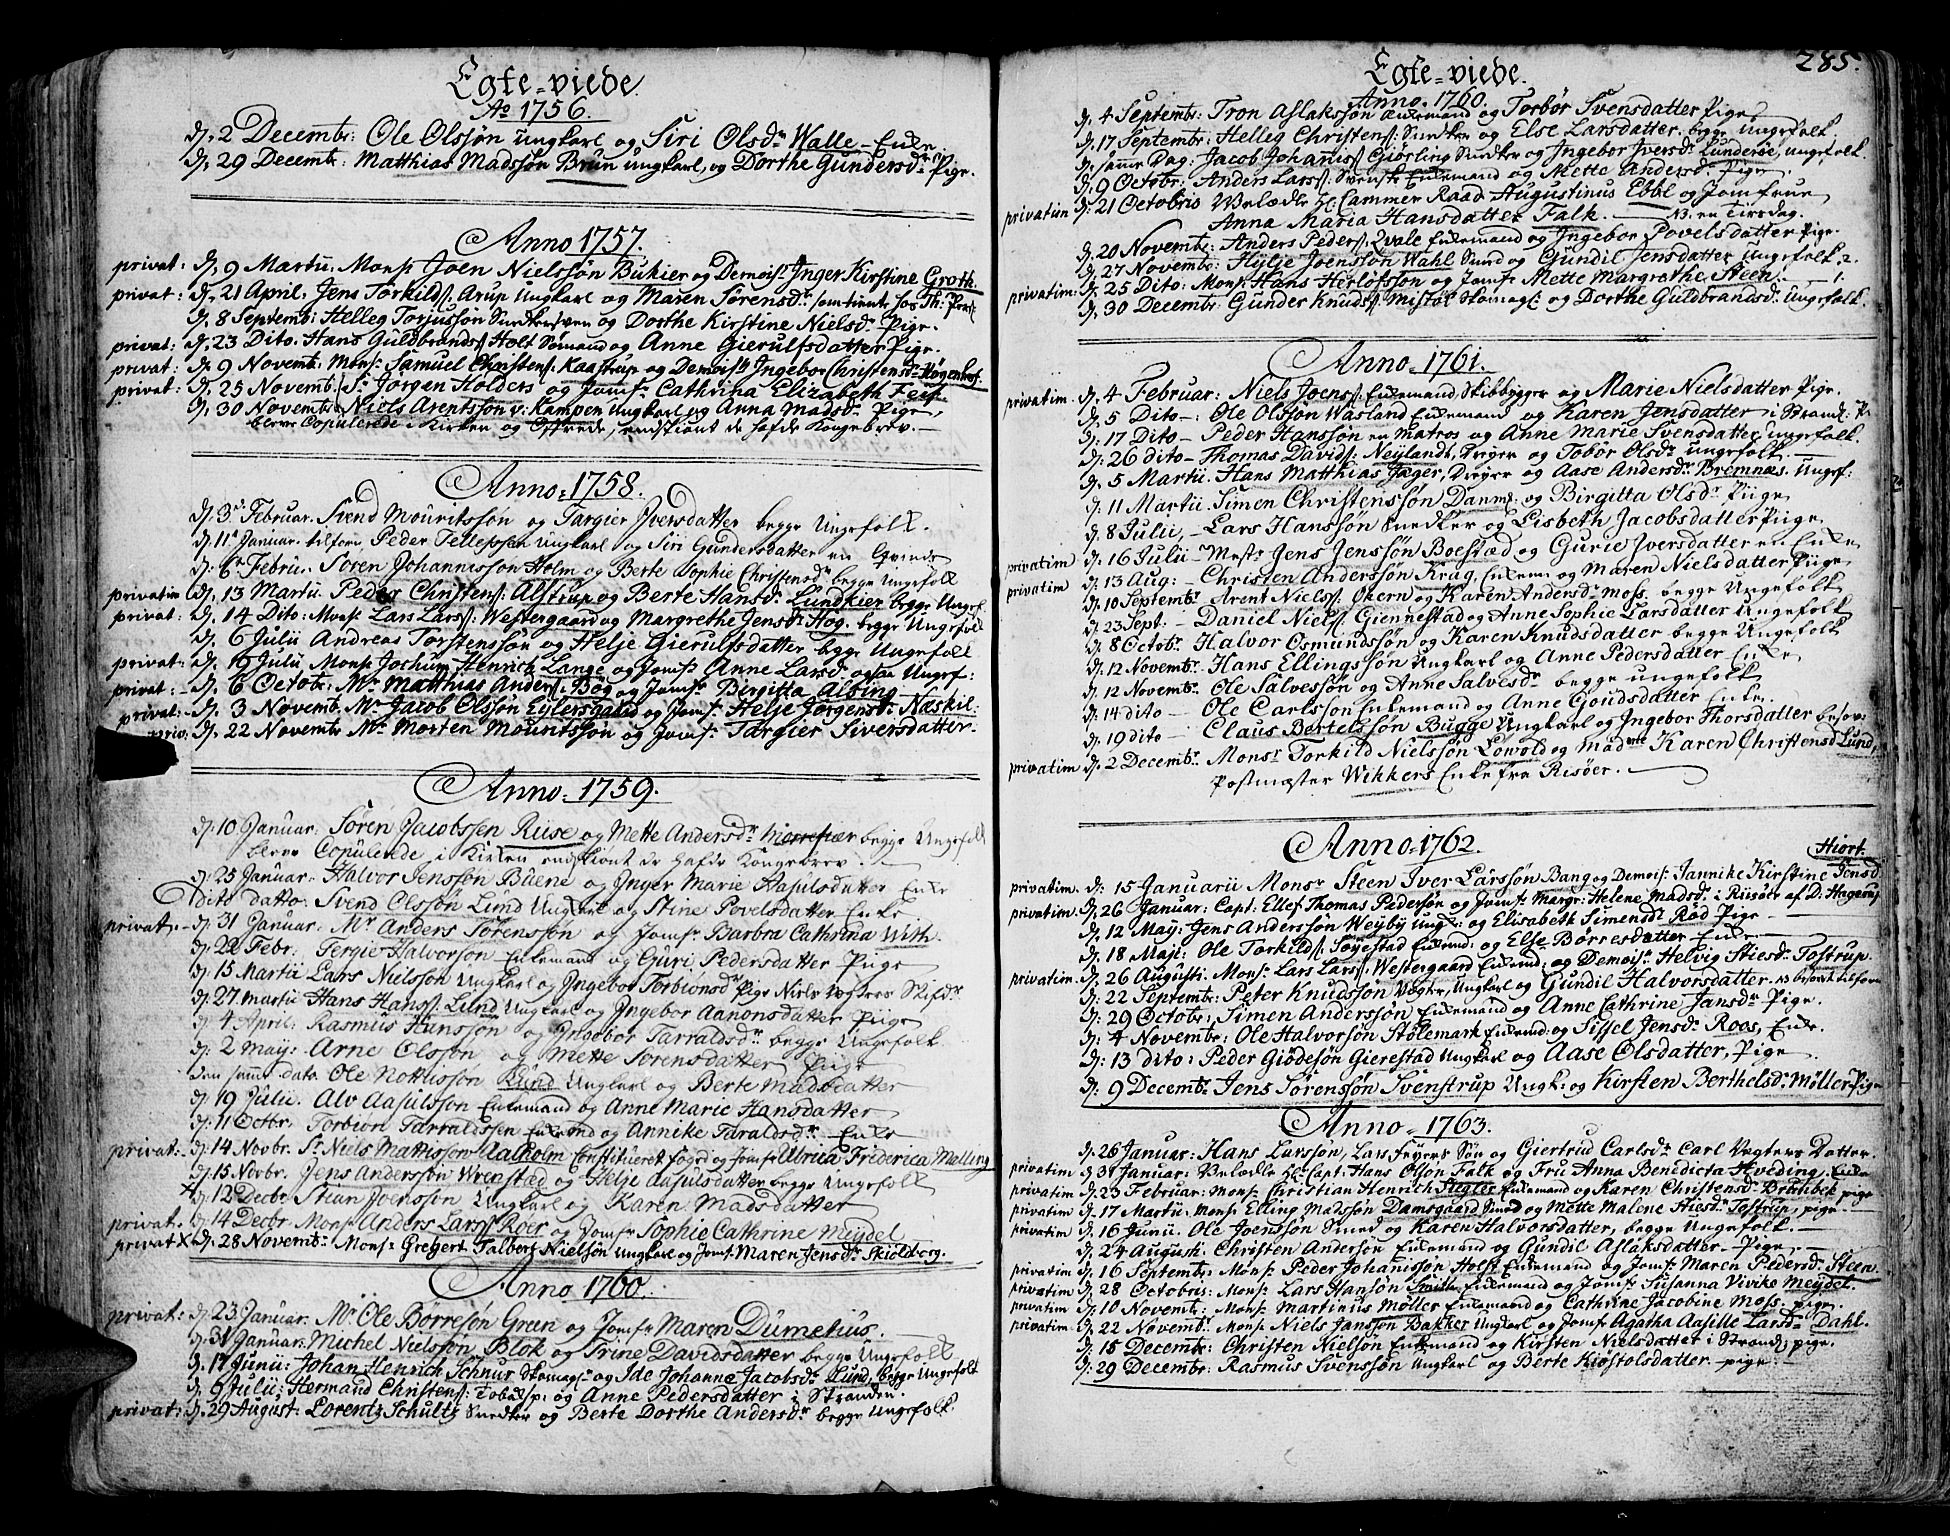 Egte-viede.
Ao 1756.
d. 2 Decembr: Ole Olssøn ungkarl og Siri Olsdr Walle - Enke
d. 29 Decembr: Matthias Madssøn Brun ungkarl, og Dorthe Gundersdr Pige.
Anno 1757.
privat: d. 9 Martii. Monsr Joen Nielssøn Bukier og Demoisle Inger Kirstine Groth.
privat: d. 21 April: Jens Torkilds: Arup Ungkarl og Maren Sørensdr, som tiente for Th:
d. 8 Septemb: Helleg Torjussøn Snedkersven og Dorthe Kirstine Nielsdr Pige.
privat: d. 23 Dito: Hans Guldbrands: Holt Sømand og Anne Gierulfsdatter Pige.
privat: d. 9 Novemb: Mons: Samuel Christens: Kaastrup og Demoisle Ingebor Christensdr
privat: d. 25 Novemb: Sr Jørgen Holders og Jomfr Cathrina Elizabeth
d. 30 Novembr Niels Arentssøn v: Kampen Ungkarl og Anna Madsdr Pige,
bleve Copulerede i Kirken og Ostrede, endskiønt de hafde Kongebrev.
Anno 1758.
d. 3 Februar. Svend Mouritssøn og Targier Iversdatter begge Ungefolk.
d. 11 Januar. tilforn Peder Tellefssen Ungkarl og Siri Gundersdatter en Qvinde
d. 6 Febru: Søren Johannissøn Holm og Berte Sophie Christensdr begge Ungefolk
privatim d. 13 Martii Peder Christens: Alstrup og Berte Hansdr Lundkier begge Ungef.
privat: d. 14 Dito: Mons: Lars Lars: Westergaard og Margrethe Jensdr Høg. begge Ungefolk
d. 6 Julii Andreas Torstenssøn og Helje Gierulfsdatter begge Ungefolk
privat: d. 19 Julii Mons: Jochum Henrich Lange og Jomfr Anne Larsd ogsaa Ungef:
privat: d. 6 Octobr: Mr Matthias Anders: Bøg og Jomfr Birgitta Alsing
privat: d. 3 Novemb. Mr Jacob Olssøn Eylersgaard og Jomfr Helje Jørgensdr Næskil:
priv: d. 22 Novembr Mr Morten Mouritssøn og Jomfr Targier Siversdatter.
Anno 1759.
d. 10 Januar: Søren Jacobssen Riise og Mette Andersdr begge Ungefolk
bleve Copulerede i Kirken endskiønt de hafde Kongebrev.
d. 25 Januar: Halvor Jenssøn Buene og Inger Marie Aasulsdatter Enke
dito datto: Svend Olssøn Lund Ungkarl og Stine Povelsdatter Enke
privat: d. 31 Januar: Mr Anders Sørenssøn og Jomfr Barbra Cathrina With.
d. 22 Febr: Tergie Halvorsøn Enkemand og Guri Pedersdatter Piige
d. 15 Martii Lars Nielssøn Ungkarl og Ingebor Torbiønsdr Pige Niels Vogters Stifdr
d. 27 Martii Hans Hans: Lund Ungkarl og Ingebor Aanonsdatter Piige
d. 4 April: Rasmus Hanssøn og Ingebor Tarraldsdr begge Ungefolk
d. 2 May: Arne Olssøn og Mette Sørensdatter Piige
den samme dato Ole Nottissøn Lund Ungkarl og Berte Madsdatter
d. 19 Julii. Alv Aasulssøn Enkemand og Anne Marie Hansdatter
d. 11 Octbr: Torbiøn Tarraldssen Enkemd og Annike Taraldsdr Enke
privat: d. 14 Novbr. Sr Niels Mattissøn Aalholm Constitueret Foged og Jomfr Ulrica Friderica Malling
d. 15 Novbr. Jens Anderssøn Wrenstad og Helje Aasulsdatter begge Ungefolk
d. 12 Decbr: Stean Joenssøn Ungkarl og Karen Madsdatter
privat. d. 14 Decbr. Mons: Anders Lars: Roer og Jomfr Sophie Cathrine Meydel
privat X d. 28 Novembr. Mons: Gregert Talbert Nielsøn ungkarl og Jomfr Maren Jensdr Skiolborg.
Anno 1760.
privat: d. 23 Januar: Mr Ole Børresøn Green og Jomfr Maren Dumetius.
d. 31 Januar: Michel Nielssøn Blok og Trine Davidsdatter begge Ungefolk
d. 17 Junii: Johan Henrich Schnur Skomag: og Ide Johanne Jacobsdr Lund, begge Ungefolk
d. 9 Julii: Hermand Christens: Tobaksp: og Anne Pedersdatter i Stranden.
privat: d. 29 August: Lorentz Schultz Snedker og Berte Dorthe Andersdr begge Ungefolk.
285.
Egte-viede.
Anno 1760.
d. 4 Septembr: Tron Aslakssøn Enkemand og Torbør Svensdatter Pige
d. 17 Septembr: Helleg Christens: Snedker og Else Larsdatter. begge Ungefolk.
d. samme Dag: Jacob Johanis: Giørling Snedker og Ingebor Iversdr Lunderøe, ungefolk.
d. 9 Octobr: Anders Lars: Svenske Enkemand og Mette Andersd: Pige
privatim d: 21 Octobris Welædle Hr Cammer Raad Augustinus Ebbl og Jomfrue
Anna Maria Hansdatter Falk. NB. en Tirsdag.
d. 20 Novembr: Anders Peders: Qvale Enkemand og Ingebor Povelsdatter Pige.
d. 27 Novembr: Hylje Joenssøn Wahl Smed og Gundil Jensdatter ungefolk. 2.
privatim: d. 25 Dito: Mons: Hans Herlofssøn og Jomfr Mette Margrethe Steen. 1.
d. 30 Decembr: Gunder Knuds: Skomag: og Dorthe Guldbrandsdr. Ungefolk.
Anno 1761.
privatim. d. 4 Februar: Niels Joens: Enkemand Skibbygger og Marie Nielsdatter Pige.
d. 5 Dito - Ole Olssøn Wasland Enkemand og Karen Jensdatter i Brand: P
d. 17 Dito - Peder Hanssøn en Matros og Anne Marie Svensdatter, ungefolk.
d. 26 dito - Thomas Davids: Neylandt, Dreyer og Tobør Olsdr ungefolk.
d. 5 Martii. Hans Matthias Jæger, Dreyer og Aase Andersdr Bremnæs. Ungef:
d. 11 Martii. Simen Christenssøn Danm: og Birgitta Olsdr Piige
d. 8 Julii, - Lars Hanssøn Snedker og Lisbeth Jacobsdatter Piige.
privatim d. 16 Julii - Mestr Jens Jenssøn Boestad og Gurie Iversdatter en Enke
privatim d. 13 Aug: - Christen Anderssøn Krag, Enkem: og Maren Nielsdatter Piige
d. 10 Septembr. Arent Niels: Okern og Karen Andersdr Moss. begge Ungefolk
d. 23 Sept: - Daniel Niels: Giennestad og Anne Sophie Larsdatter Ungefolk
d. 8 Octobr. Halvor Osmundssøn og Karen Knudsdatter begge Ungefolk
d. 12 Novembr. Hans Ellingssøn Ungkarl og Anne Pedersdatter Enke
d. 12 Novembr. Ole Salvessøn og Anne Salvesdr begge ungefolk
d. 14 dito - Ole Carlssøn Enkemand og Anne Gundsdatter Enke
d. 19 dito - Claus Bertelssøn Bugge Ungkarl og Ingebor Thorsdatter besov:
privatim d. 2 Decembr. Monsr Torkild Nielssøn Lowold og Madme Karen Christensd Lund,
Postmester Wikkers Enke fra Risøer.
Anno 1762.
Hiort.
privatim. d: 15 Januarii Monsr Steen Iver Larssøn Bang og Demois: Jannike Kirstine Jensd
privatim d. 26 Januar: Capt: Ellef Thomas Pedersøn og Jomfr Margr: Helene Madsd: i Riisøer af D: Hagerup
d. 12 May: Jens Anderssøn Weyby ungk: og Elisabeth Simensdr Rød Pige
d. 18 Maji: Ole Torkilds: Sognstad Enkemd: og Else Børresdatter Enke
privatim d. 26 Augusti: Mons: Lars Lars: Westergaard Enkemd: og Demois: Helvig Stiesdr Tostrup.
d. 22 Septembr: Peter Knudssøn Vogter, Ungkarl og Gundil Halvorsdatter.
d. 29 Octobr: Simen Anderssøn og Anne Cathrine Jansdr Pige.
d. 4 Novembr: Ole Halvorsøn Stølemark Enkemd: og Sissel Jensdr Roas, Enke.
d. 13 Dito: Peder Giødesøn Gierestad Ungkarl og Aase Olsdatter, Pige
d. 9 Decembr. Jens Sørenssøn Svenstrup Ungk: og Kirsten Berthelsdr Møller Pige
Anno 1763.
d: 26 Januar: Hans Larssøn, Lars Feyers Søn og Giertrud Carlsdr Carl Vegters Datter.
privatim d. 31 Januar: Velædle Hr Capt: Hans Olsøn Falk og Fru Anna Benedicta Hveding. Enke
privatim d. 23 Februar: Mons: Christian Henrich Stigler Enkemand og Karen Christensdr Brunbek pige
privatim d. 17 Martii Mons: Elling Madssøn Damsgaard Smed og Mette Malene Stiesdr Tostrup, pige.
privatim d. 16 Junii. Ole Joenssøn Smed og Karen Halvorsdatter, begge Ungefolk.
d. 24 August: Christen Andersøn Enkemand og Gundil Aslaksdatter Pige
privatim d. 16 Septembr: Mons: Peder Johanissøn Holst Enkemand og Jomfr Maren Pedersdr Steen.
privatim d. 28 Octobris: Mons: Lars Hansøn Smith Enkemand og Jomfr Susanna Vivike Meydel.
privatim d. 10 Novemb: Mons: Martinius Møller Enkemand og Cathrine Jacobine Moss. pige.
privatim d. 22 Novembr. Mons: Niels Jansson Bakker Ungkarl og Jomfr Agatha Aasille Larsdr Dahl.
d: 15 Decembr: Christen Nielsøn Enkemand og Kirsten Nielsdatter i Strand: pige.
d: 29 Decembr: Rasmus Svenssøn Ungkarl og Berte Kiøstolsdatter pige